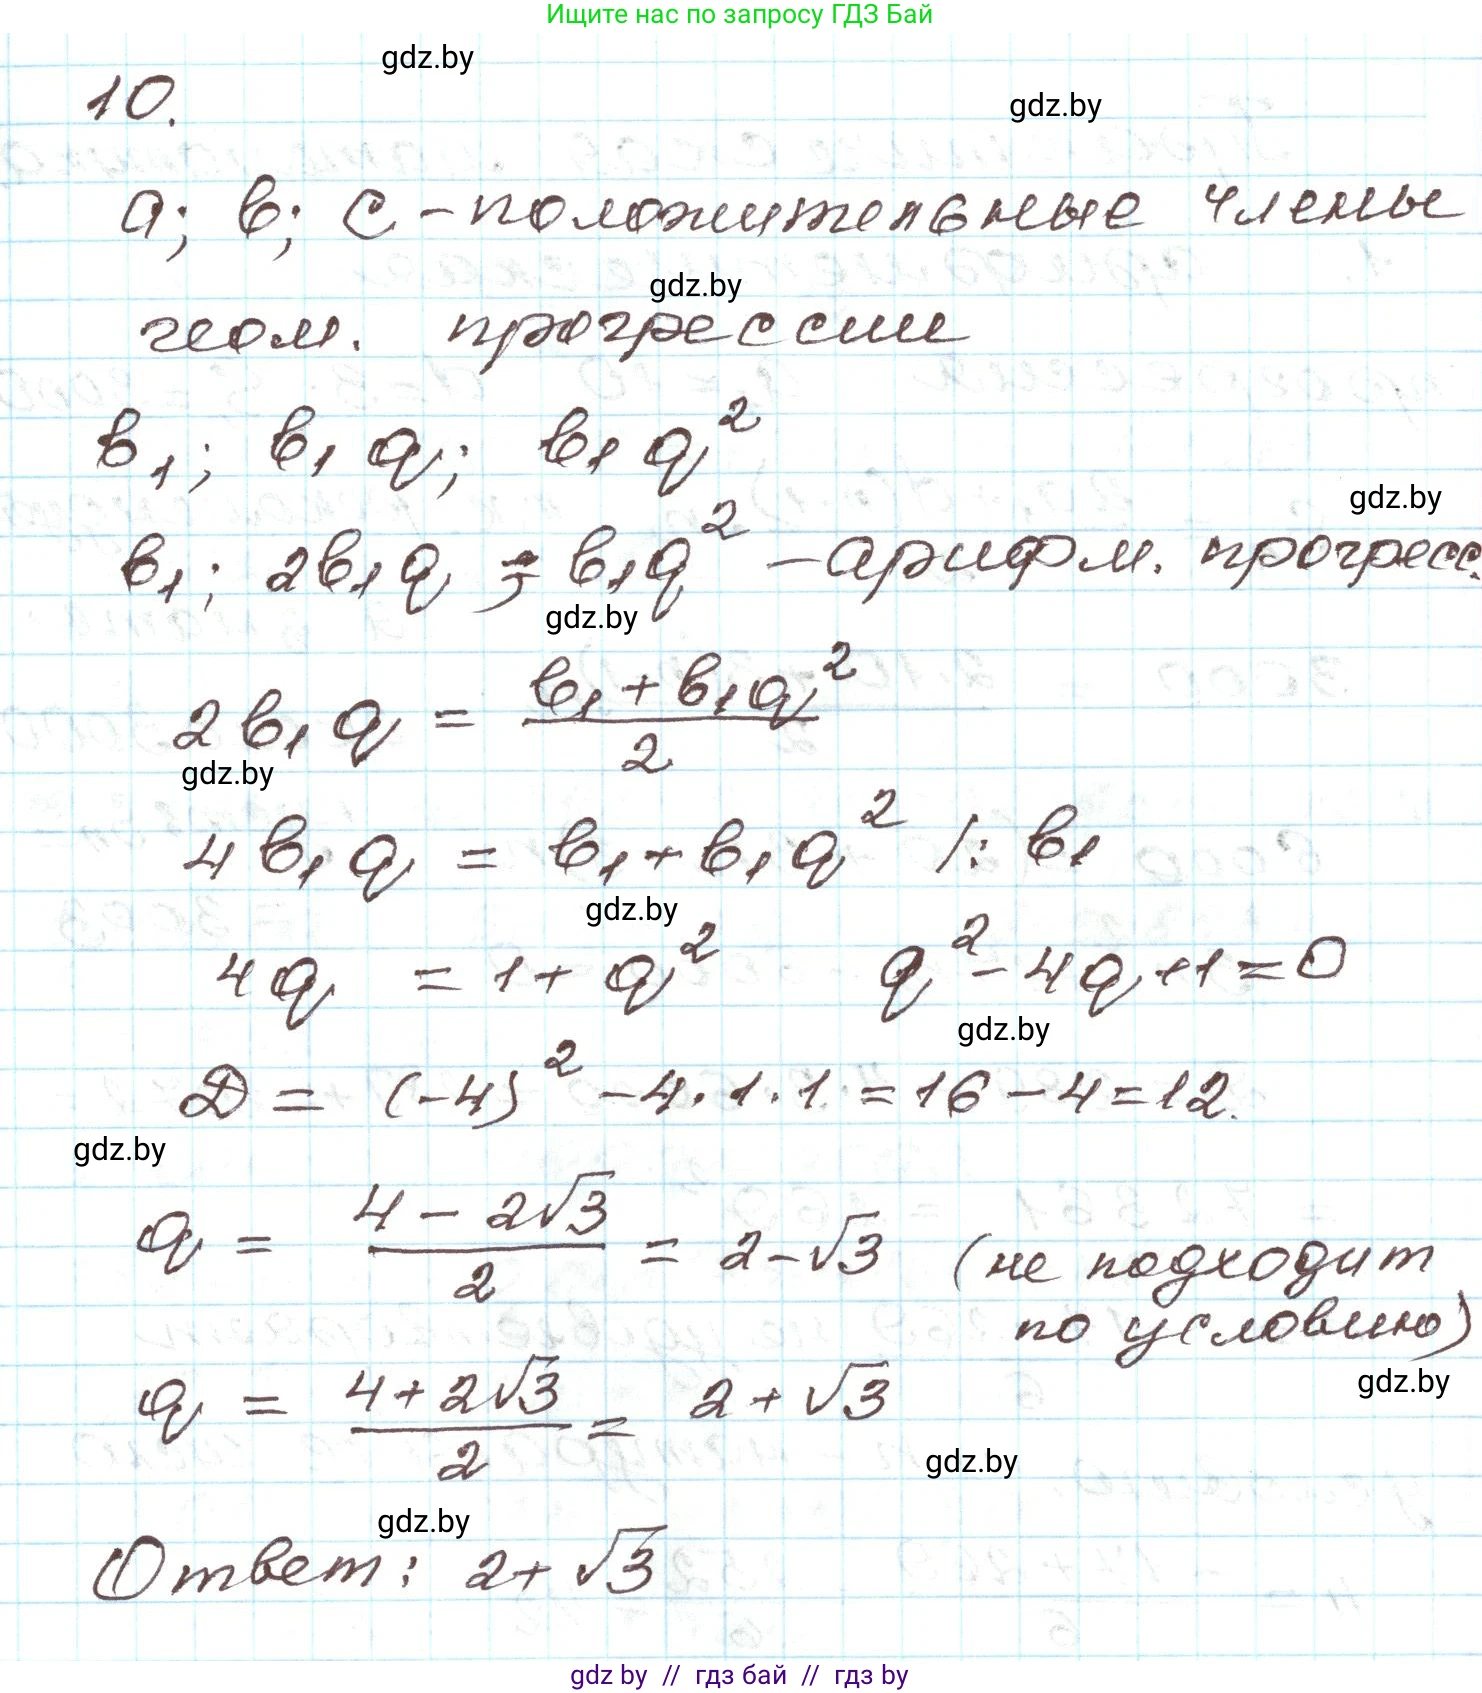 Ищите нас по запросу ГДЗ Бай
gdz.by
10.
gdz.by
a; в; c - положительные члены
gdz.by
геом. прогрессии
в₁; в₁q; в₁q²
gdz.by
в₁; 2в₁q; в₁q² - арифм. прогресс.
gdz.by
2в₁q = (в₁+в₁q²)/2
gdz.by
4в₁q = в₁+в₁q² /: в₁
gdz.by
4q = 1+q² q²-4q+1=0
gdz.by
D = (-4)² - 4·1·1 = 16 - 4 = 12.
gdz.by
q = (4 - 2√3)/2 = 2-√3 (не подходит
по условию)
gdz.by
q = (4+2√3)/2 = 2+√3
gdz.by
gdz.by
Ответ: 2+√3
gdz by // гдз бай // gdz by